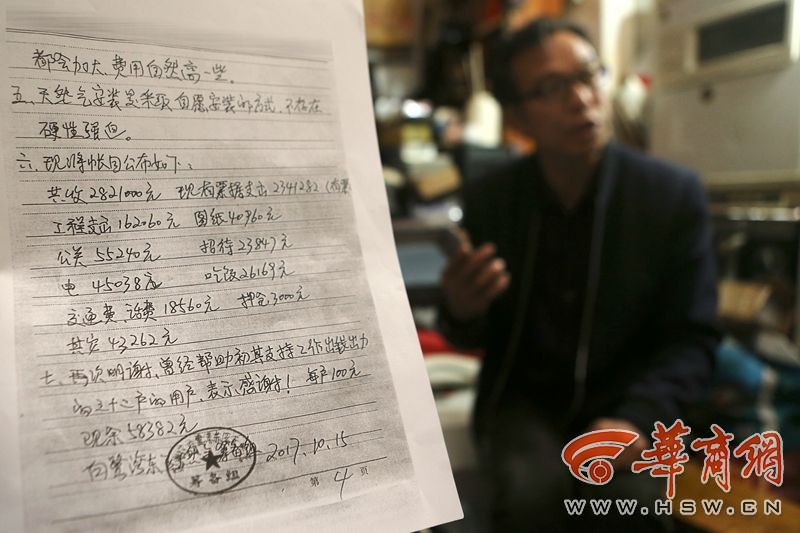 都会加大、费用自然高一些。
五、天然气安装是采取自愿安装的方式、不存在
硬性强迫。
六、现将帐目公布如下:
共收2821000元 现有票据支出2341282
工程支出162060元 图纸40960元
公关55240元 招待23847元
电45038元 吃饭26169元
交通费、话费18560元 押金3000元
共它43262元
七、再次感谢、曾经帮助初其支持工作出钱出力
的三十二户的用户、表示感谢! 每户100元
现余58382元
筹备组
2017.10.15
第4页
华商网
WWW.HSW.CN